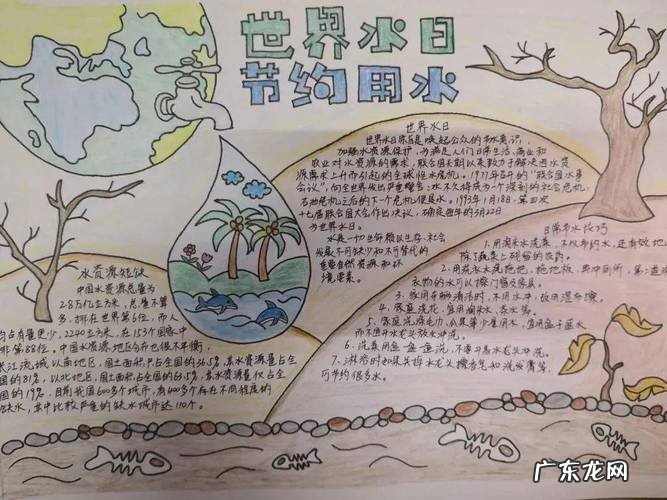 世界水日
节约用水
世界水日
世界水日宗旨是唤起公众的节水意识，
加强水资源保护，为满足人们日常生活、商业和
农业对水资源的需求，联合国长期以来致力于解决因水资
源需求上升而引起的全球性水危机。1977年召开的“联合国水事
会议”，向全世界发出严重警告：水不久将成为一个深刻的社会危机，
石油危机之后的下一个危机便是水。1993年1月18日，第四次
十七届联合国大会作出决议，确定每年的3月22日
为世界水日。
水是一切生命赖以生存，社会
发展不可缺少和不可替代的
重要自然资源和环
境要素。
水资源短缺
中国水资源总量为
2.8万亿立方米，总量不算
多，排在世界第6位，而人
均占有量更少，2240立方米，在153个国家中
排第88位。中国水资源地区分布也很不平衡，
长江流域以南地区，国土面积只占全国的36.5%，其水资源量占全
国的81%，以北地区，国土面积占全国的63.5%，其水资源量仅占全
国的19%，目前我国600多个城市，有400多个存在不同程度的
缺水，其中比较严重的缺水城市达110个。
日常节水技巧
1.用淘米水洗菜，不仅节约水，还有效地
除了蔬菜上残留的农药。
2.用洗衣水洗拖把、拖地板、再冲厕所，第二道
衣物的水可以擦门窗及家具
3.
4.家庭浇花，宜用淘米水、茶水等。
5.家庭洗
而不宜开水龙头放水冲洗。
6.洗菜用一盆一盆洗，不要开着水龙头冲洗。
7.淋浴时如果关掉水龙头擦香皂和洗发膏等，
可节约很多水。
广东龙网